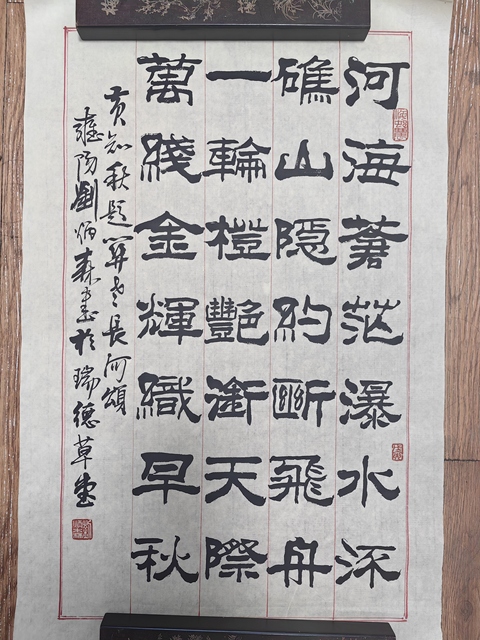 河海蒼茫瀑水流
礁山隱約斷飛舟
一輪橙艷衝天際
萬綫金輝織早秋
黄知秋題老長河頌
雍阳劉炳森書於瑞德草堂